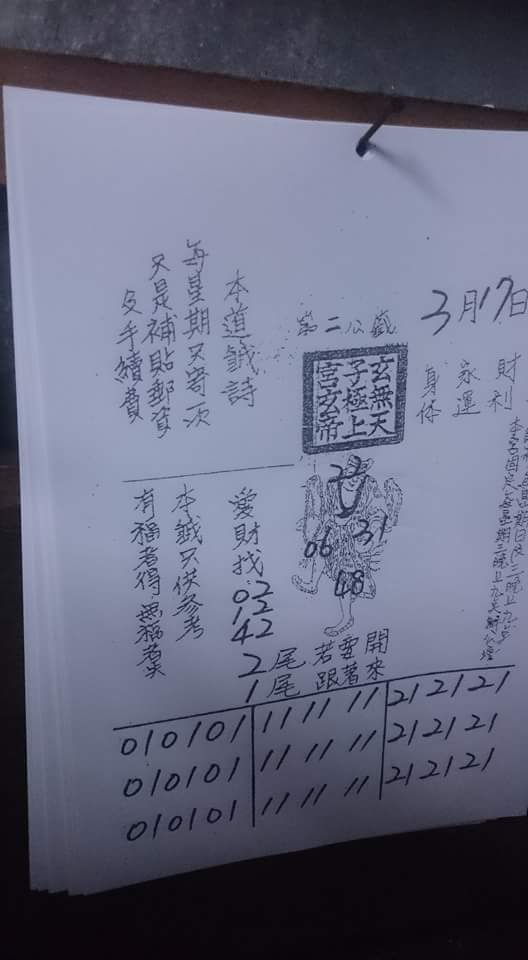 3月17日
財利
家運
身体
第二公籤
玄無天
子極上
宮玄帝
2
06 31
48
本道籤詩
每星期又寄一次
只是補貼郵資
及手續費
愛財找
02
12
42
本籤只供參考
有福者得無福者失
2尾若要開
1尾跟著來
010101 11 11 11 21 21 21
010101 11 11 11 21 21 21
010101 11 11 11 21 21 21